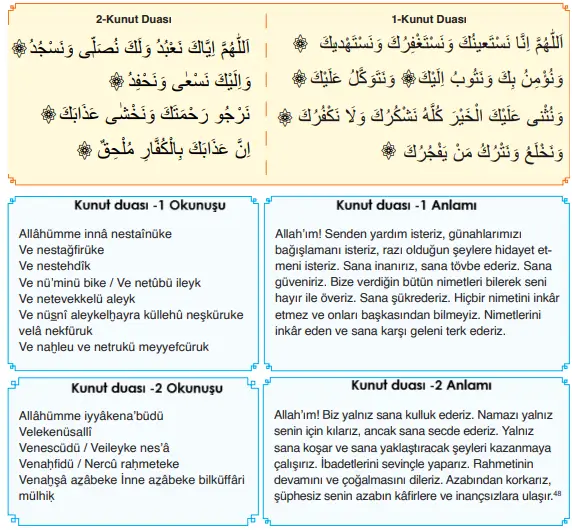 2-Kunut Duası
1-Kunut Duası
اَللّٰهُمَّ اِنَّا نَسْتَعينُكَ وَنَسْتَغْفِرُكَ وَنَسْتَهْديكَ ۞
وَنُؤْمِنُ بِكَ وَنَتُوبُ اِلَيْكَ ۞ وَنَتَوَكَّلُ عَلَيْكَ ۞
وَنُثْنى عَلَيْكَ الْخَيْرَ كُلَّهُ نَشْكُرُكَ وَلَا نَكْفُرُكَ ۞
وَنَخْلَعُ وَنَتْرُكُ مَنْ يَفْجُرُكَ ۞
اَللّٰهُمَّ اِيَّاكَ نَعْبُدُ وَلَكَ نُصَلّى وَنَسْجُدُ ۞
وَاِلَيْكَ نَسْعٰى وَنَحْفِدُ ۞
نَرْجُو رَحْمَتَكَ وَنَخْشٰى عَذَابَكَ ۞
اِنَّ عَذَابَكَ بِالْكُفَّارِ مُلْحِقٌ ۞
Kunut duası -1 Okunuşu
Allâhümme innâ nestaînüke
Ve nestağfirüke
Ve nestehdîk
Ve nü’minü bike / Ve netûbü ileyk
Ve netevekkelü aleyk
Ve nüs̱nî aleykelḫayra küllehû neşküruke
velâ nekfüruk
Ve naḫleu ve netrukü meyyefcüruk
Kunut duası -1 Anlamı
Allah’ım! Senden yardım isteriz, günahlarımızı
bağışlamanı isteriz, razı olduğun şeylere hidayet et-
meni isteriz. Sana inanırız, sana tövbe ederiz. Sana
güveniriz. Bize verdiğin bütün nimetleri bilerek seni
hayır ile överiz. Sana şükrederiz. Hiçbir nimetini inkâr
etmez ve onları başkasından bilmeyiz. Nimetlerini
inkâr eden ve sana karşı geleni terk ederiz.
Kunut duası -2 Okunuşu
Allâhümme iyyâkena’büdü
Velekenüsallî
Venescüdü / Veileyke nes’â
Venaḥfidü / Nercû raḥmeteke
Venaḫşâ aẕâbeke İnne aẕâbeke bilküffâri
mülhiḳ
Kunut duası -2 Anlamı
Allah’ım! Biz yalnız sana kulluk ederiz. Namazı yalnız
senin için kılarız, ancak sana secde ederiz. Yalnız
sana koşar ve sana yaklaştıracak şeyleri kazanmaya
çalışırız. İbadetlerini sevinçle yaparız. Rahmetinin
devamını ve çoğalmasını dileriz. Azabından korkarız,
şüphesiz senin azabın kâfirlere ve inançsızlara ulaşır.48